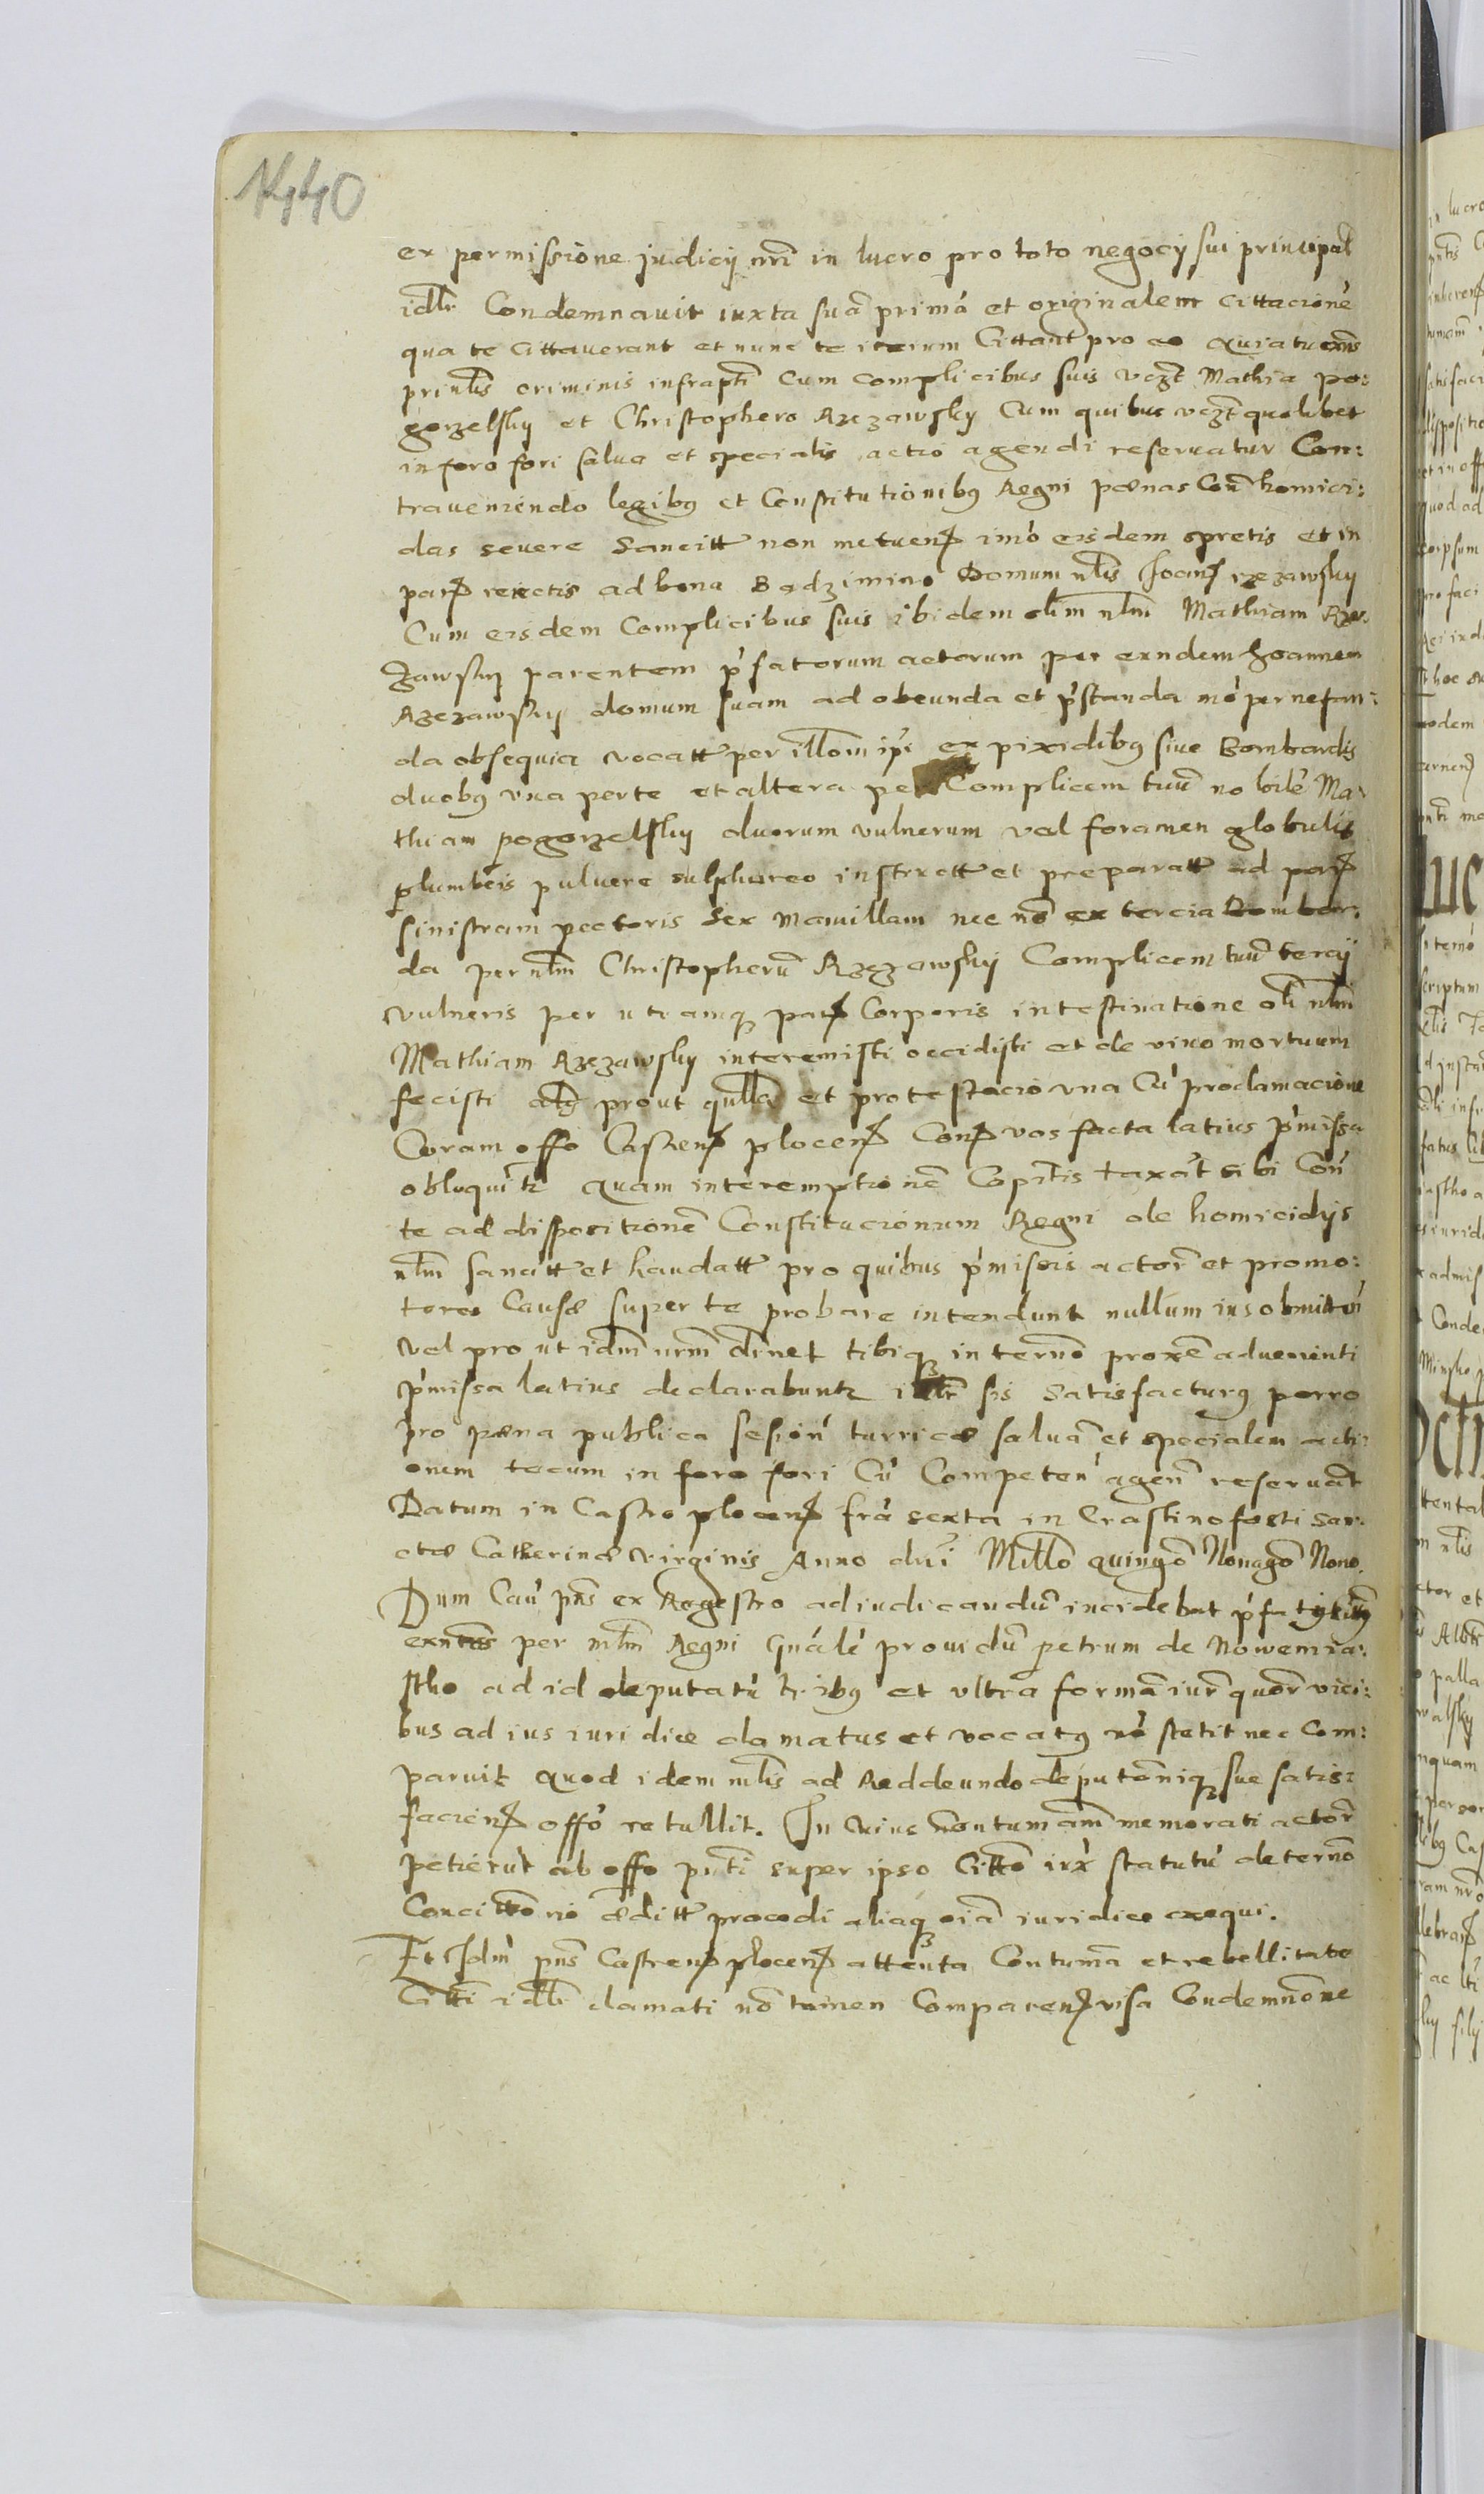 1440
ex permissione judicij nri in lucro pro toto negocij sui principal
idlr Condemnauit iuxta suā primā et originalem Cittacionē
qua te cittauerant et nunc te iterum Cittant pro eo Quia tu exns
prinlis criminis infrapti Cum complicibus suis vczt Mathia po:
gorzelsky et Christophero Rzezawsky Cum quibus vczt quolibet
in foro fori salua et specialis actio agendi reseruatur Con:
traueniendo legibq et Constitutionibq Regni pœnas Con homici:
das seuere Sancitt non metuen imo eisdem spretis et in
par reiectis ad bona Badzimino Domum nlis Joan rzezawsky
Cum eisdem Complicibus suis ibidem olim nlm Mathiam Rze:
zawsky parentem pfatorum actorum per eundem Joannem
Rzezawsky domum suam ad obeunda et pstanda imo per nefan:
da obsequia vocatt per illom ipe ex pixidibq siue Bombardis
duobq vna perte et altera per Complicem tuū nobilē Ma:
thiam pogorzelsky duorum vulnerum vel foramen globulis
plumbeis puluere sulphureo instructt et preparatt ad par
sinistram pectoris Sex Mamillam nec nō ex tercia Bombar:
da per nlm Christopherū Rzezawsky Complicem tuū tercij
vulneris per utramq par Corporis intestinatione oli nlm
Mathiam Rzezawsky interemisti occidisti et de viuo mortuum
fecisti prout qulla et protestacio vna Cū proclamacione
Coram offo Castren plocen Con vos facta latius pmissa
obloquitr Quam interemptionē Capitis taxāt sibi Con
te ad dispositionē Constitucionum Regni de homicidijs
nlm sancitt et haudatt pro quibus pmissis actor et promo:
tores Causæ super te probare intendunt nullum ius obmitten
vel pro ut idm nrm dinet tibiq in termō proxē aduenienti
pmissa latius declarabuntr idlr sis Satisfacturq porro
pro pœna publica sesion turricæ saluā et specialem acti:
onem tecum in foro fori Cū Competen agen reseruāt
Datum in Castro plocen frā sexta in Crastino festi San:
ctæ Catherinæ virginis Anno dni Millō quingō Nonagō Nono.
Dum Cau pns ex Regestro adiudicandū incidebat pfatq
exntes per mlm Regni Gnālē prouidū petrum de Nowemia:
stho ad id deputatū tribq et vltra formā iur quor vici:
bus ad ius iuridice clamatus et vocatq nō stetit nec Com:
paruit Quod idem mlis ad Reddeundo deputōniq sue satis:
facien offō retullit. In Cuius Contumam memorati actor
petierūt ab offo pnti super ipso Cittō iux statutū de termō
Concittōnō æditt procedi aliaq oia iuridice exequi.
Et Idm pns Castren plocen attenta Contumā et rebellitate
Citti idlr clamati nō tamen Comparen visa Condemnōne